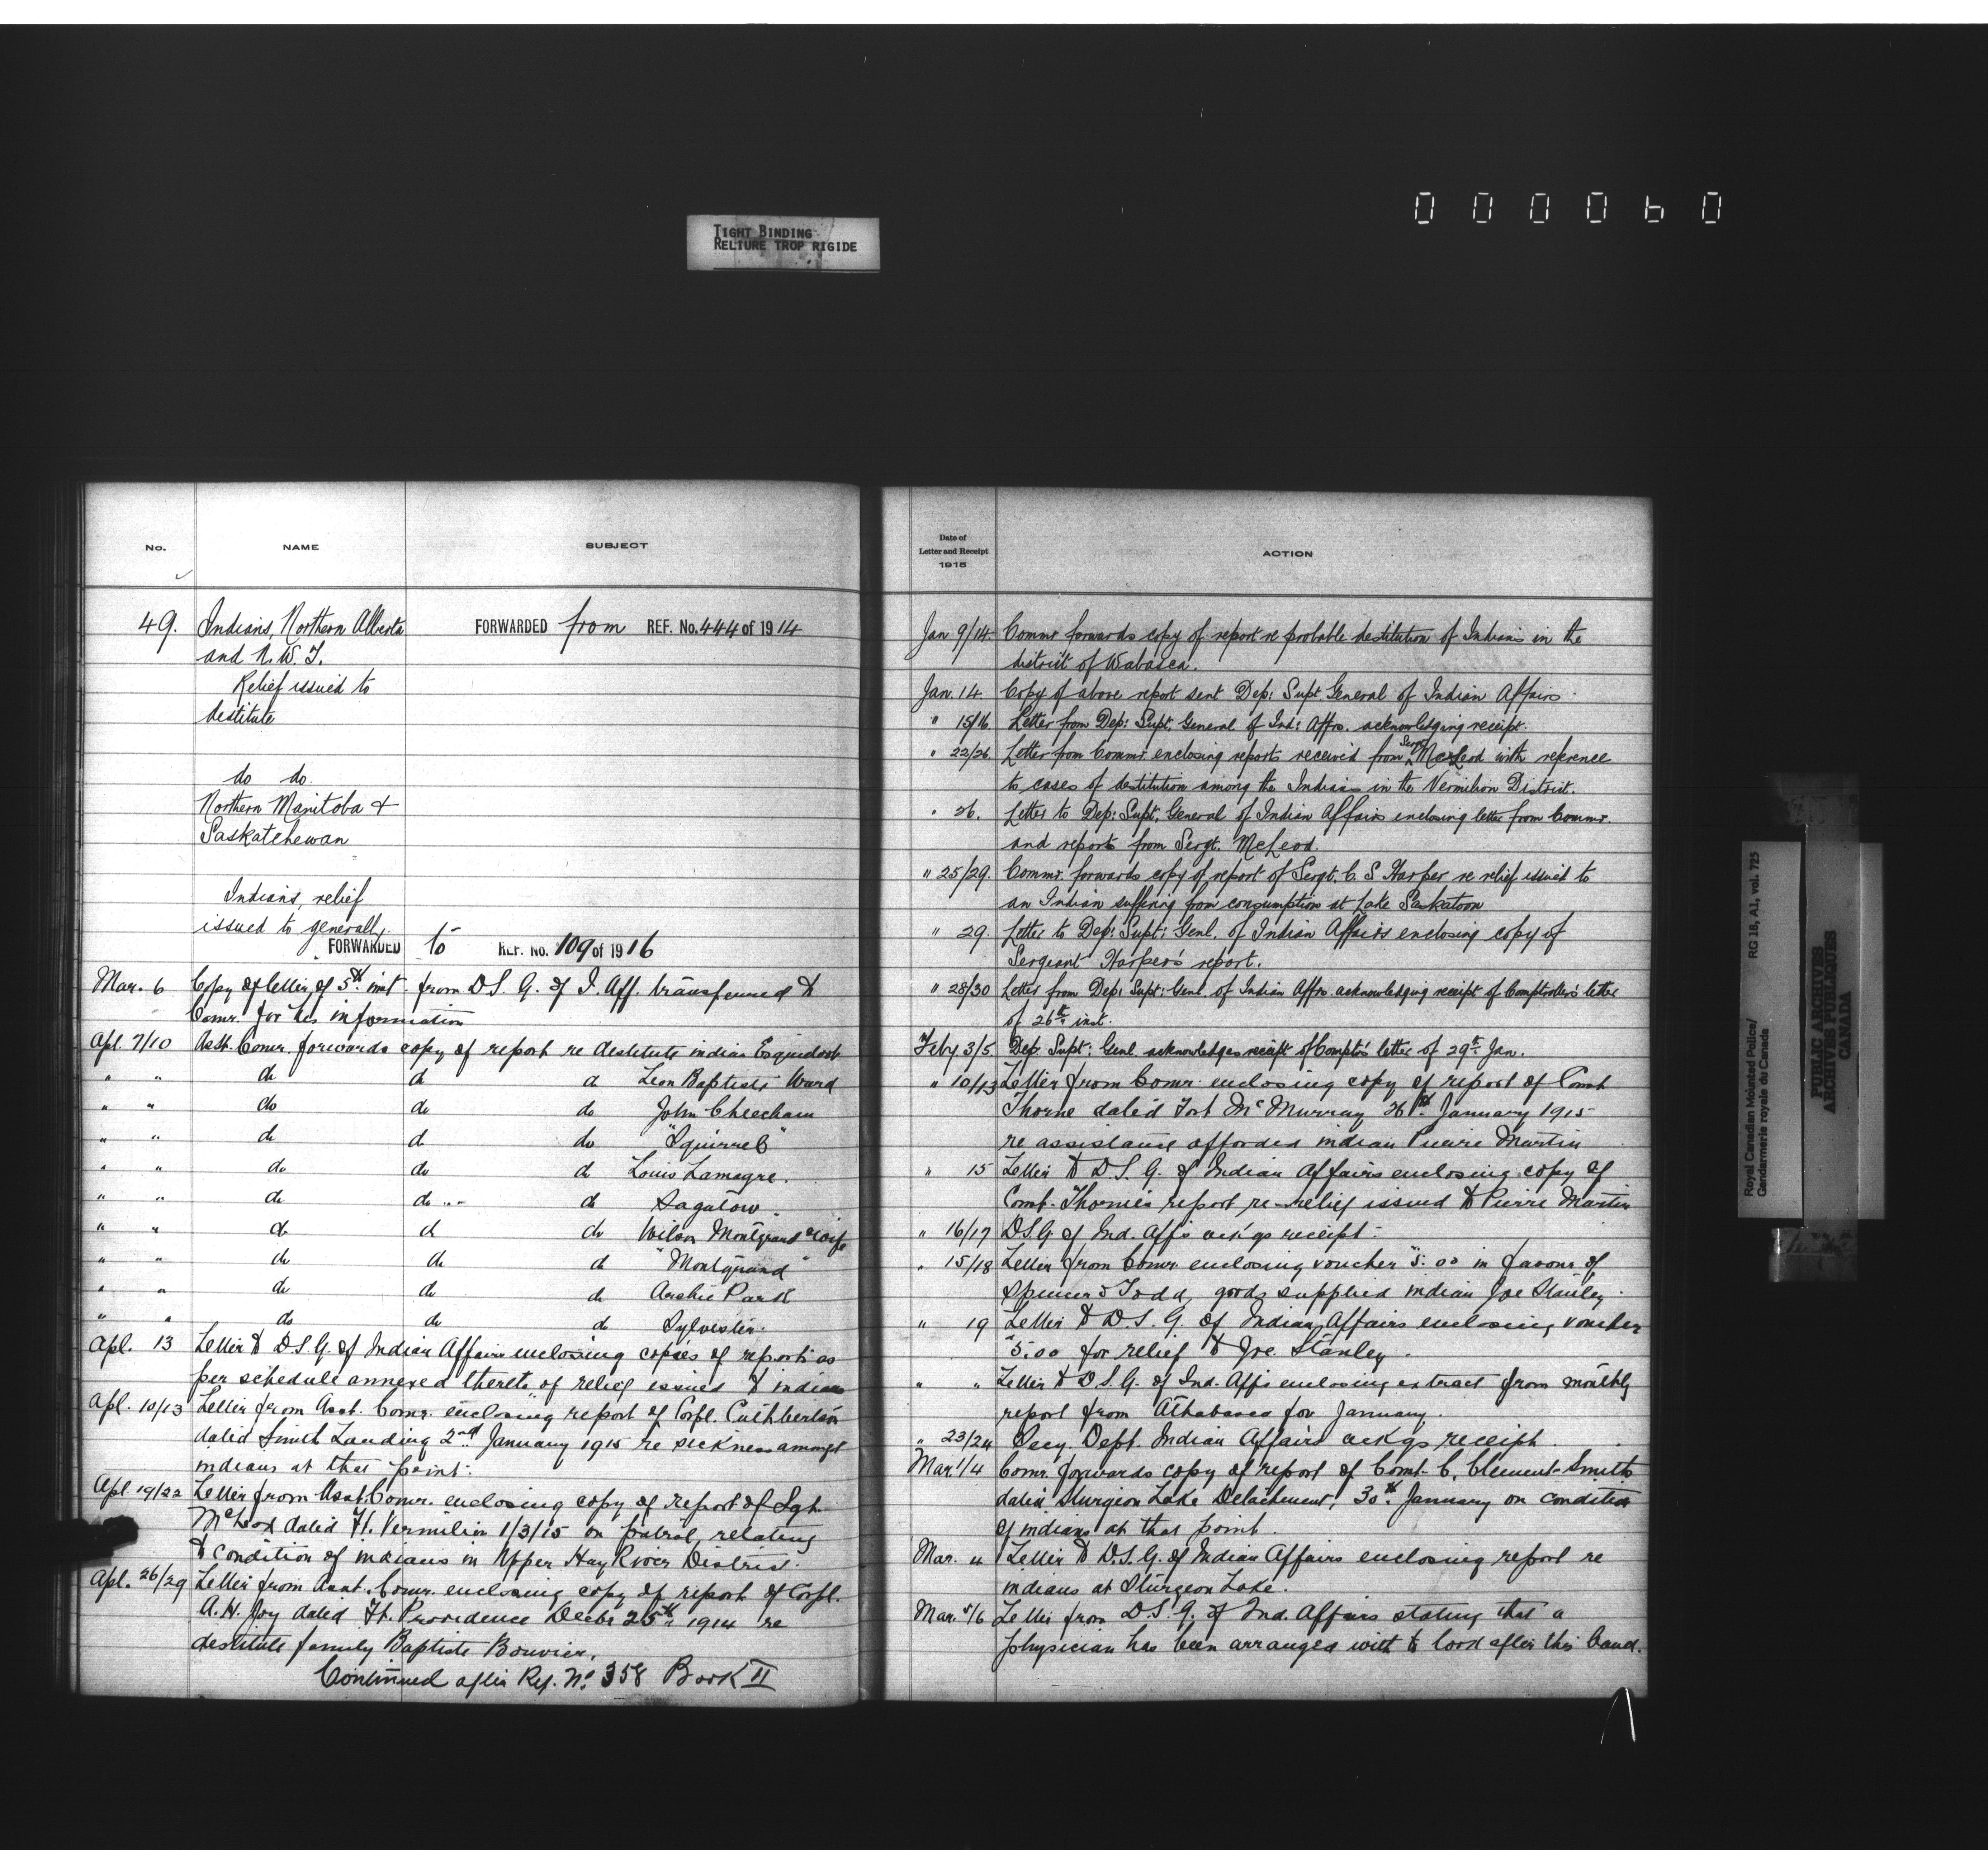 000060
TIGHT BINDING
RELIURE TROP RIGIDE
No. NAME SUBJECT
49. Indians, Northern Alberta FORWARDED from REF. No. 444 of 1914
and N. W. T.
Relief issued to
destitute
do do.
Northern Manitoba &
Saskatchewan
Indians, relief
issued to generally.
FORWARDED to REF. No. 109 of 1916
Mar. 6 Copy of letter of 5th inst. from D.S.G. of I. Aff. transferred to
Comr. for his information
Apl. 7/10 Asst. Comr. forwards copy of report re destitute indian
" " do do do Leon Baptiste Ward
" " do do do John Cheecham
" " do do do "Squirrel"
" " do do do Louis Lamagre.
" " do do do Sagalow.
" " do do do Wilson Montgrand & wife
" " do do do "Montgrand"
" " do do do Archie Park
" " do do do Sylvester.
Apl. 13 Letter to D.S.G. of Indian Affairs enclosing copies of reports as
per schedule annexed thereto, of relief issued to indians
Apl. 10/13 Letter from Asst. Comr. enclosing report of Corpl. Cuthbertson
dated Smith Landing 2nd January 1915 re sickness amongst
indians at that point.
Apl. 19/22 Letter from Asst. Comr. enclosing copy of report of Sgt.
McLeod dated Ft. Vermilion 1/3/15 on patrol, relating
to condition of indians in Upper Hay River District.
Apl. 26/29 Letter from Asst. Comr. enclosing copy of report of Corpl.
A.H. Joy dated Ft. Providence Decbr 25th 1914 re
destitute family Baptiste Bouvier.
Continued after Ref. No. 358 Book II
Date of
Letter and Receipt ACTION
1915
Jan 9/14. Commr. forwards copy of report re probable destitution of Indians in the
district of Wabasca.
Jan. 14. Copy of above report sent Dep: Supt General of Indian Affairs.
" 15/16. Letter from Dep: Supt. General of Ind: Affrs. acknowledging receipt.
" 22/26. Letter from Commr. enclosing reports received from Sergt McLeod with refrence
to cases of destitution among the Indians in the Vermilion District.
" 26. Letter to Dep: Supt. General of Indian Affairs enclosing letter from Commr.
and reports from Sergt. McLeod.
" 25/29. Commr. forwards copy of report of Sergt. C. S Harper re relief issued to
an Indian suffering from consumption at Lake Saskatoon
" 29. Letter to Dep: Supt: Genl. of Indian Affairs enclosing copy of
Sergeant Harper's report.
" 28/30 Letter from Dep: Supt: Genl. of Indian Affrs. acknowledging receipt of Comptroller's letter
of 26th inst.
Feby 3/5. Dep: Supt: Genl. acknowledges receipt of Compt's letter of 29th Jan.
" 10/13 Letter from Comr. enclosing copy of report of Const
Thorne dated Fort McMurray 26th January 1915
re assistance afforded indian Pierre Martin
" 15 Letter to D.S.G. of Indian Affairs enclosing copy of
Const. Thorne's report re relief issued to Pierre Martin
" 16/17 D.S.G. of Ind. Aff's ack'gs receipt.
" 15/18 Letter from Comr. enclosing voucher $5.00 in favour of
Spencer & Todd, goods supplied indian Joe Stanley.
" 19 Letter to D.S.G. of Indian Affairs enclosing voucher
$5.00 for relief to Joe. Stanley.
" " Letter to D.S.G. of Ind. Affs enclosing extract from monthly
report from Athabasca for January.
" 23/24 Secy. Dept. Indian Affairs ack'gs receipt.
Mar. 1/4 Comr. forwards copy of report of Const. C. Clement-Smith
dated Sturgeon Lake Detachment, 30th January on condition
of indians at that point.
Mar. 4 Letter to D.S.G. of Indian Affairs enclosing report re
indians at Sturgeon Lake.
Mar. 5/6 Letter from D.S.G. of Ind. Affairs stating that a
physician has been arranged with to look after this band.
Royal Canadian Mounted Police/ RG 18, A1, vol. 725
Gendarmerie royale du Canada
PUBLIC ARCHIVES
ARCHIVES PUBLIQUES
CANADA